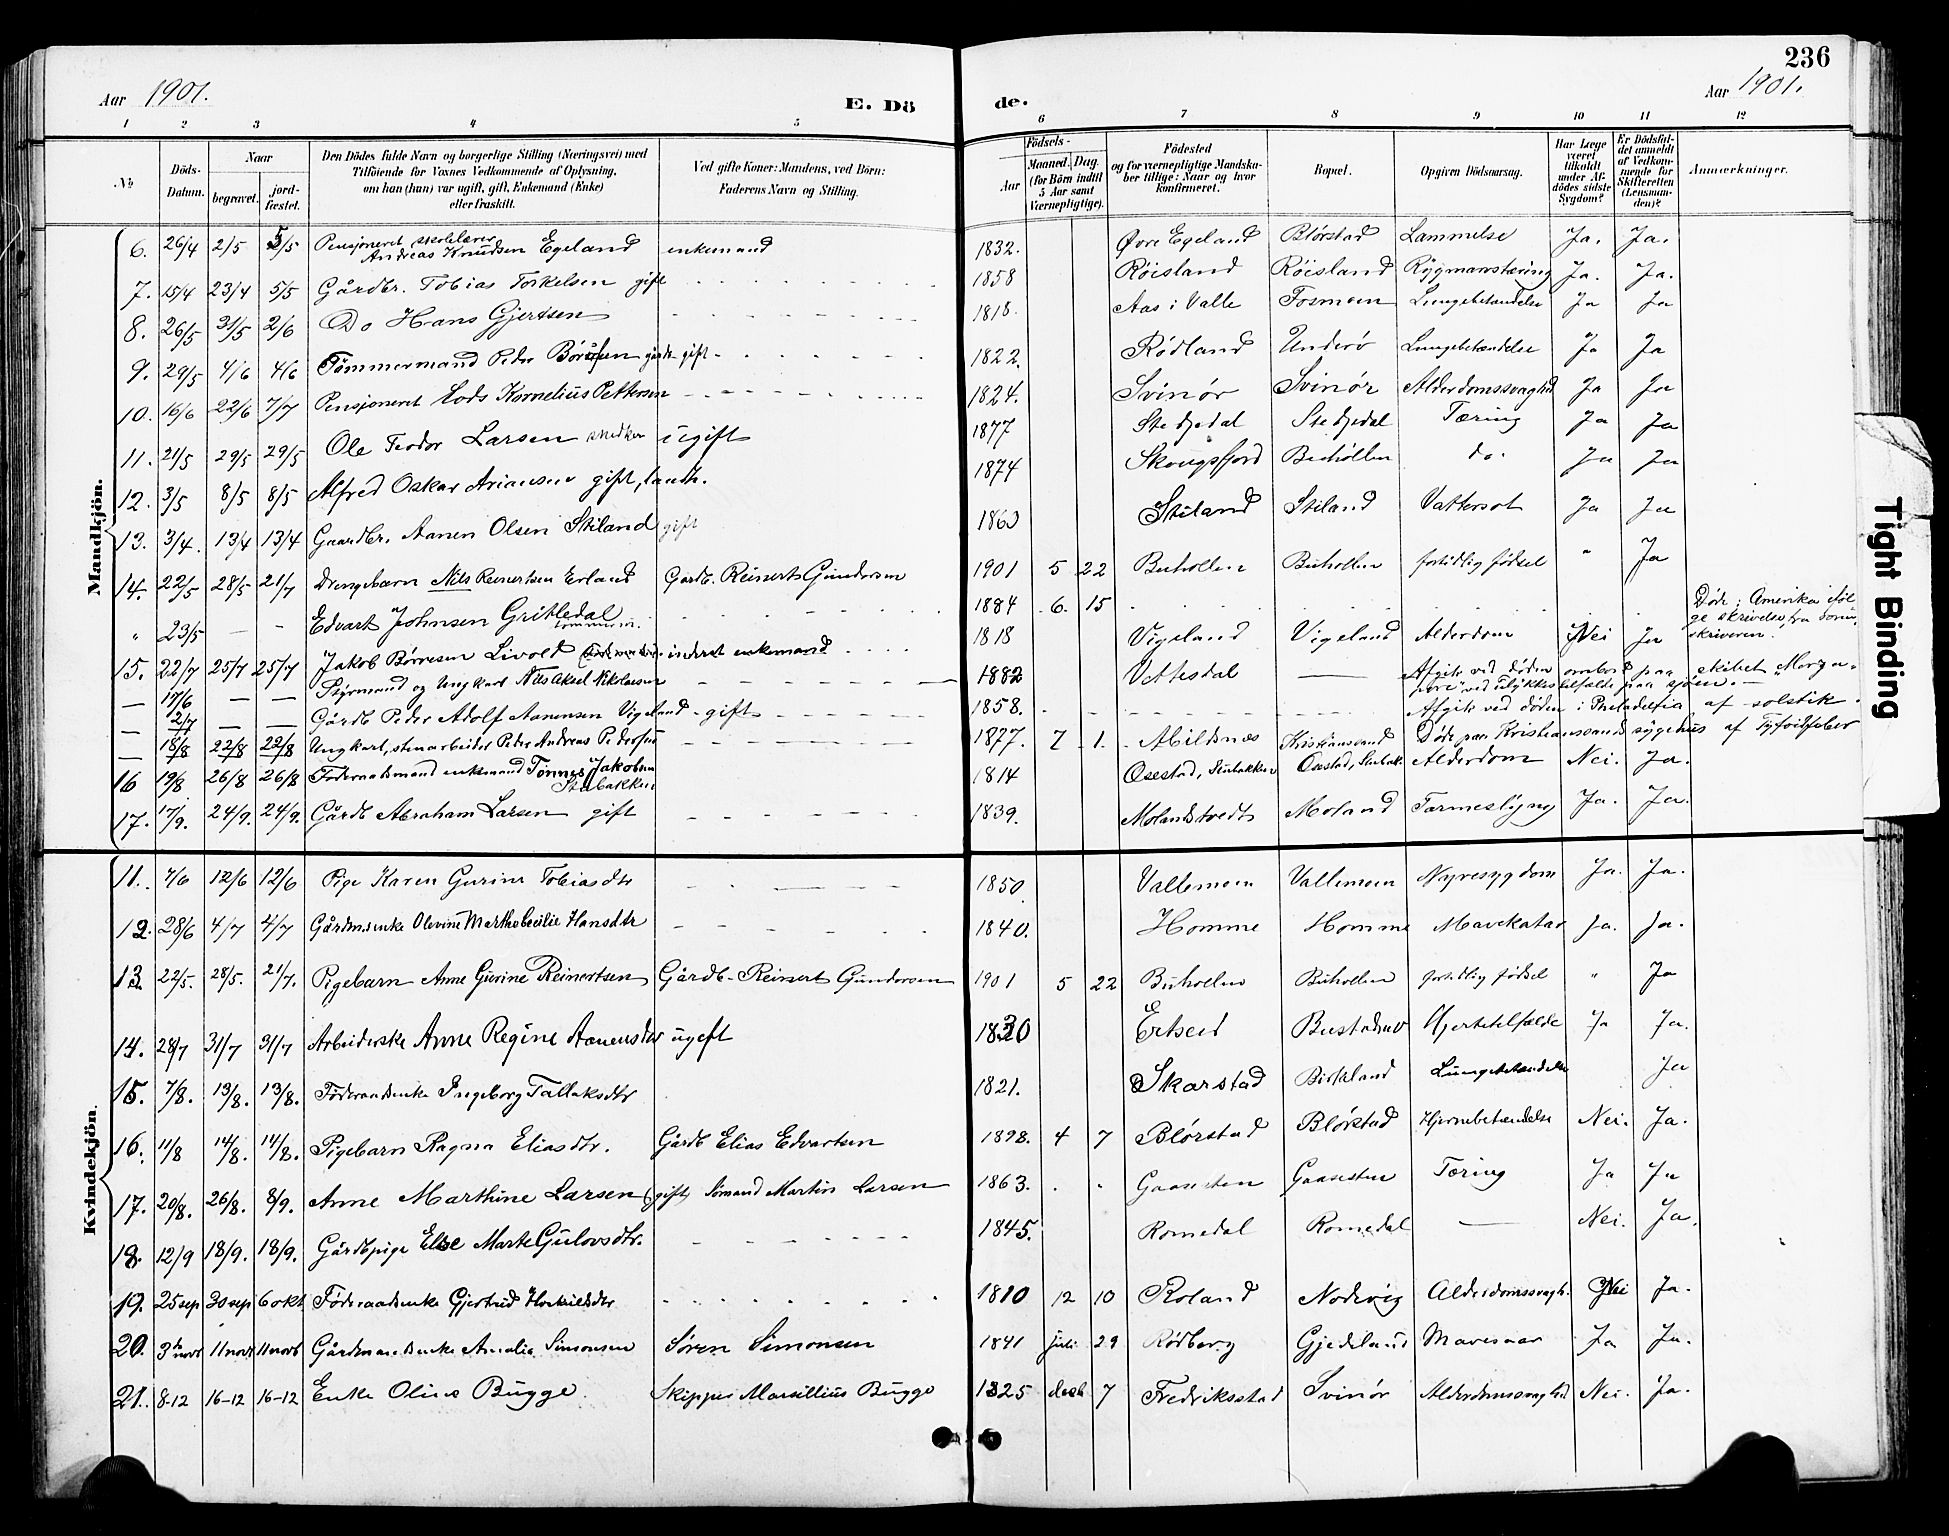 236
Aar 1901. E. Dö
de. Aar 1901.
1 2 3 4 5 6 7 8 9 10 11 12
№ Döds-Datum. Naar begravet. jordfæstet. Den Dödes fulde Navn og borgerlige Stilling (Næringsvei) med Tilföiende for Voxnes Vedkommende af Oplysning, om han (hun) var ugift, gift, Enkemand (Enke) eller fraskilt. Ved gifte Koner: Mandens, ved Börn: Faderens Navn og Stilling. Födsels- Aar Maaned. Dag. (for Börn indtil 5 Aar samt Værnepligtige). Födested og for værnepligtige Mandskaber tillige: Naar og hvor konfirmeret. Bopæl. Opgiven Dödsaarsag. Har Læge været tilkaldt under Afdödes sidste Sygdom? Er Dödsfaldet anmeldt af Vedkommende for Skifteretten (Lensmanden)? Anmærkninger.
Mandkjön.
6. 26/4 2/5 5/5 Pensjoneret skolelærer Andreas Knudsen Egeland enkemand 1832. Øvre Egeland Blørstad Lammelse Ja. Ja.
7. 15/4 23/4 5/5 Gårdbr. Tobias Torkelsen gift 1858 Røisland Røisland Rygmarvstæring Ja. Ja.
8. 26/5 31/5 2/6 Do Hans Gjertsen 1818. Aas i Valle Fosmoen Lungebetændelse Ja Ja
9. 29/5 4/6 4/6 Tømmermand Peder gift 1822. Rødland Underø Lungebetændelse Ja Ja
10. 16/6 22/6 7/7 Pensjoneret Lods Kornelius Pettersen 1824. Svinør Svinør Alderdomssvaghed Ja Ja
11. 21/5 29/5 29/5 Ole Teodor Larsen snedker ugift 1877 Stedjedal Stedjedal Tæring Ja Ja
12. 3/5 8/5 8/5 Alfred Oskar Ariansen gift, 1874 Skougsfjord Buhollen do. Ja Ja
13. 3/4. 13/4 13/4 Gaardbr. Aanen Olsen Stiland gift 1860 Stiland Stiland Vattersot Ja Ja
14. 22/5 28/5 21/7 Drengebarn Nils Reinertsen Erland Gårdb. Reinert Gundersen 1901 5 22 Buhollen Buhollen fortidlig fødsel " Ja
" 23/5 — - Edvart Johnsen Gritledal 1884 6. 15 Døde i Amerika ifølge skrivelse fra sorenskriveren.
15. 22/7 25/7 25/7 Jakob Børresen Livold inderst enkemand 1818 Vigeland Vigeland Alderdom Nei Ja
— 17/6 — — Styrmand og Ungkarl Nils Aksel Nikolaisen 1882 Vettesdal — Afgik ved døden ombord paa skibet ved Ulykkestilfælde paa sjøen.
— 2/7 — — Gårdb Peder Adolf Aanensen Vigeland - gift 1858. Afgik ved døden i Philadelfia af solstik.
— 18/8 22/8 22/8 Ungkarl, stenarbeider Peder Andreas Pedersen 1877. 7 1. Abildsnes Kristianssand Døde paa Kristianssands sygehus af Tyfoidfeber
16 19/8 26/8 26/8 Føderaadsmand enkemand Tønnes Jakobsen Stubakken 1814 Osestad, Stubakken Osestad, Stubak. Alderdom Nei. Ja.
17. 17/9. 24/9. 24/9. Gårdb Abraham Larsen gift 1839. Molandstvedt Moland Tarmeslyng Ja. Ja.
Kvindekjön.
11. 7/6 12/6 12/6 Pige Karen Gurine Tobiasdtr 1850. Vallemoen Vallemoen Nyresygdom Ja. Ja.
12. 28/6 4/7 4/7 Gårdmdsenke Olevine Marthe Cecilie Hansdtr 1840. Homme Homme Mavekatar Ja. Ja.
13. 22/5. 28/5. 21/7. Pigebarn Anne Gurine Reinertsen Gårdb. Reinert Gundersen 1901 5 22 Buhollen Buhollen fortidlig fødsel " Ja
14. 28/7 31/7 31/7 Arbeiderske Anne Regine Aanensdtr ugift 1830 Erkseid Bustadnes Hjertetilfælde Ja Ja.
15. 7/8. 13/8. 13/8. Føderaadsenke Ingeborg Tallaksdtr 1821. Skarstad Birkland Lungebetændelse Ja
16. 11/8 14/8. 14/8. Pigebarn Ragna Eliasdtr. Gårdb Elias Edvartsen 1898. 4 7 Blørstad Blørstad Hjernebetændelse Nei. Ja.
17. 20/8. 26/8. 8/9. Anne Marthine Larsen (gift) Sømand Martin Larsen 1863. Gaasesten Gaasesten Tæring Ja Ja
18. 12/9 18/9. 18/9. Gårdbpige Else Marte Gulovsdtr. 1845. Romedal Romedal — Nei. Ja.
19. 25 sep 30 sep 6 okt Føderaadsenke Gjertrud 1810 12 10 Roland Nodevig Alderdomssvagh. Nei Ja.
20. 3die novb 11 novb 11 novb Gårdmandsenke Amalia Simonsen Søren Simonsen 1841 juli 29 Rødberg Gjedeland Mavesaar Ja Ja.
21. 8-12 16-12 16-12 Enke Oline Bugge. Skipper Marsillius Bugge 1825 decb 7 Fredriksstad Svinør Alderdomssvaghed Nei. Ja.
Tight Binding